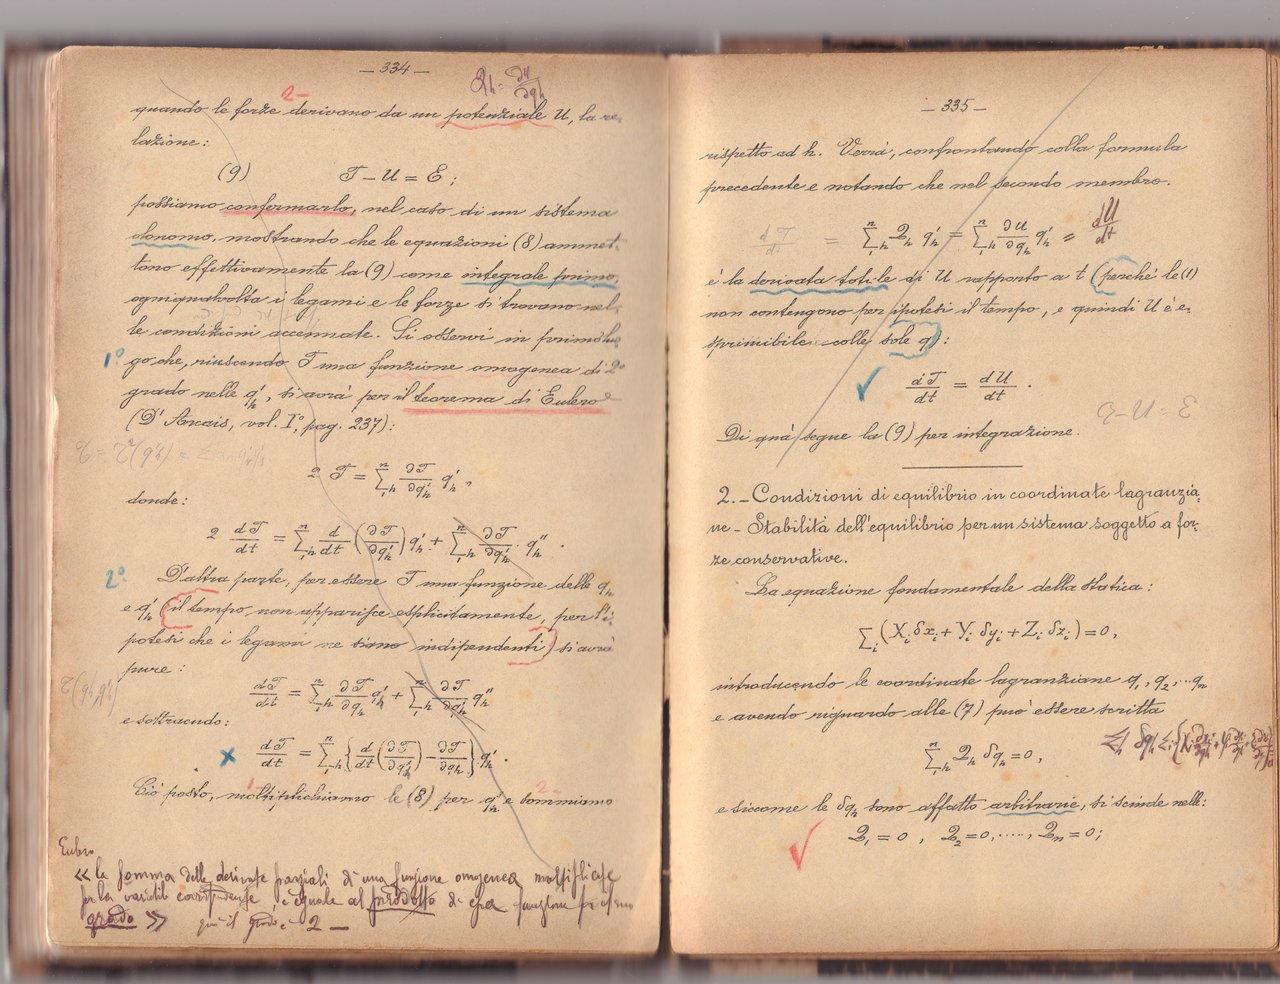 — 334 —
Qh = ∂U/∂qh
2-
quando le forze derivano da un potenziale U, la re-
lazione:
(9) T - U = E ;
possiamo confermarlo, nel caso di un sistema
olonomo, mostrando che le equazioni (8) ammet-
tono effettivamente la (9) come integrale primo,
ogniqualvolta i legami e le forze si trovano nel-
le condizioni accennate. Si osservi in primo luo-
1º
go che, riuscendo T una funzione omogenea di 2º
grado nelle q'h, si avrà per il teorema di Eulero
(D'Arcais, vol. Iº, pag. 237):
2 T = Σ₁ⁿh ∂T/∂q'h q'h ,
donde:
2 dT/dt = Σ₁ⁿh d/dt (∂T/∂q'h) q'h + Σ₁ⁿh ∂T/∂q'h q''h .
2º
D'altra parte, per essere T una funzione delle qh
e q'h (il tempo non apparisce esplicitamente, per l'i-
potesi che i legami ne siano indipendenti) si avrà
pure :
T(qh, q'h)
dT/dt = Σ₁ⁿh ∂T/∂qh q'h + Σ₁ⁿh ∂T/∂q'h q''h
e sottraendo:
x dT/dt = Σ₁ⁿh { d/dt (∂T/∂q'h) - ∂T/∂qh } q'h .
Ciò posto, moltiplichiamo le (8) per q'h e sommiamo
Eulero
« la somma delle derivate parziali di una funzione omogenea moltiplicate
per la variabile corrispondente è eguale al prodotto di essa funzione pel suo
grado » qui il grado è 2 —
— 335 —
rispetto ad h. Verrà, confrontando colla formula
precedente e notando che nel secondo membro.
dT/dt = Σ₁ⁿh Qh q'h = Σ₁ⁿh ∂U/∂qh q'h = dU/dt
è la derivata totale di U rapporto a t (perché le (1)
non contengono per ipotesi il tempo, e quindi U è e-
sprimibile colle sole q) :
✓ dT/dt = dU/dt .
Di quà segue la (9) per integrazione.
2. - Condizioni di equilibrio in coordinate lagranzia-
ne - Stabilità dell'equilibrio per un sistema soggetto a for-
ze conservative.
La equazione fondamentale della statica :
Σi (Xi δxi + Yi δyi + Zi δzi) = 0,
introducendo le coordinate lagranziane q₁, q₂, ... qn
e avendo riguardo alle (7) può essere scritta
Σ₁ⁿh Qh δqh = 0 ,
e siccome le δqh sono affatto arbitrarie, si scinde nelle:
✓ Q₁ = 0 , Q₂ = 0, ....., Qn = 0;